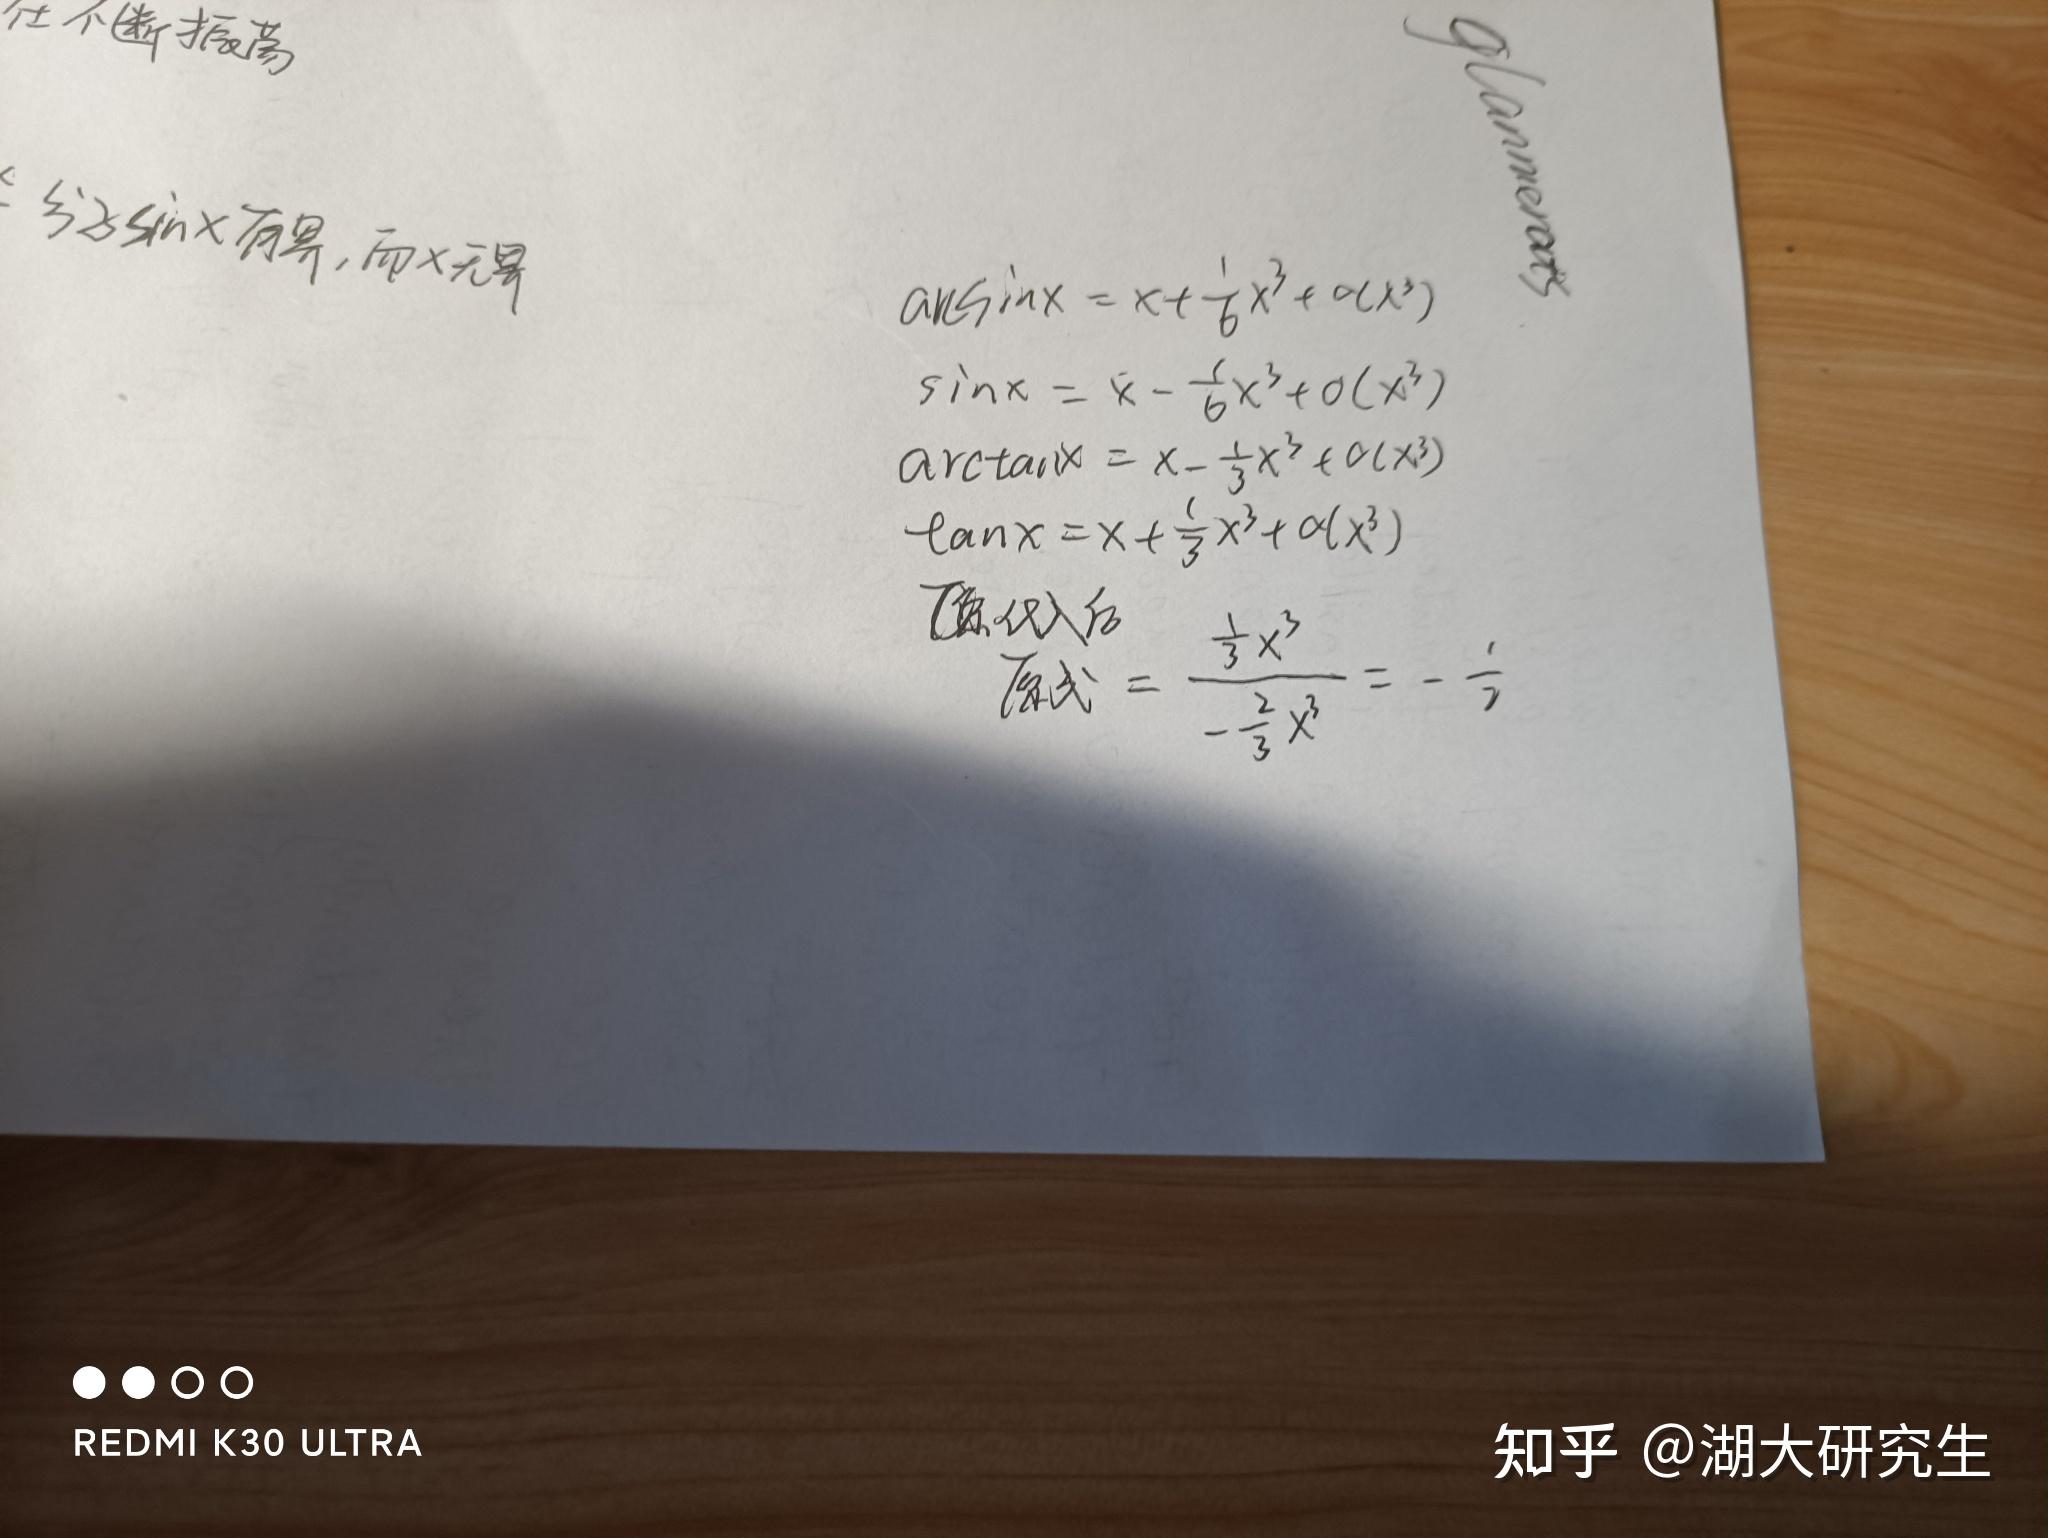 不断振荡
分子sinx有界,而x无界
arcsinx = x+1/6x³+o(x³)
sinx = x-1/6x³+o(x³)
arctanx = x-1/3x³+o(x³)
tanx = x+1/3x³+o(x³)
代入后
原式 = (1/3x³)/(-2/3x³) = -1/2
REDMI K30 ULTRA
知乎 @湖大研究生